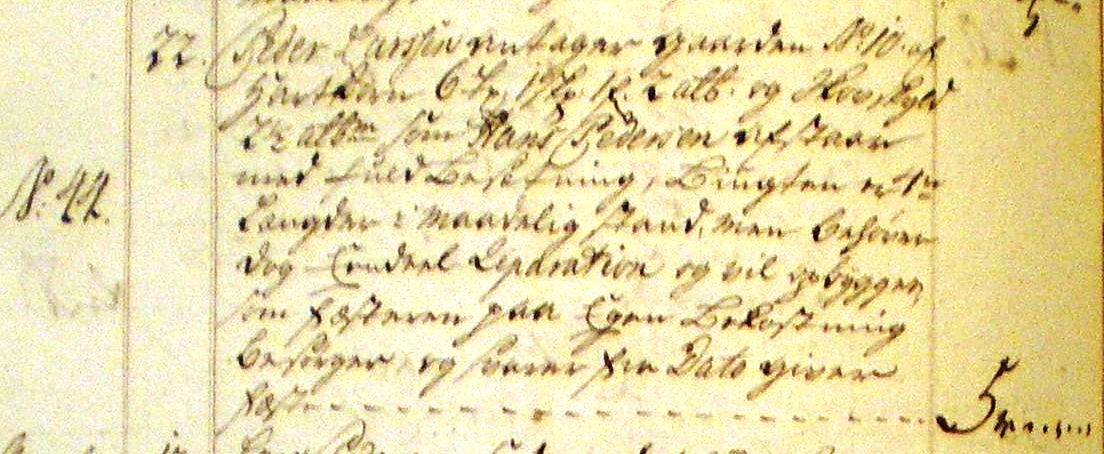 22. Peder Larsen antager gaarden No 10. af
Hartkorn 6 Tr. 1 f. 2 alb. og Skovskyld
2½ albm som Hans Pedersen afstaar
No. 44.
med fuld Besetning, Bÿugten er 4re
Længder i maadelig stand, men behøver
dog Endeel Reparation og vil opbygges,
som Fæsteren paa Egen Bekostning
besørger, og svarer fra Dato giver
Fæst - - - - - - - - - - - - - - - - 5